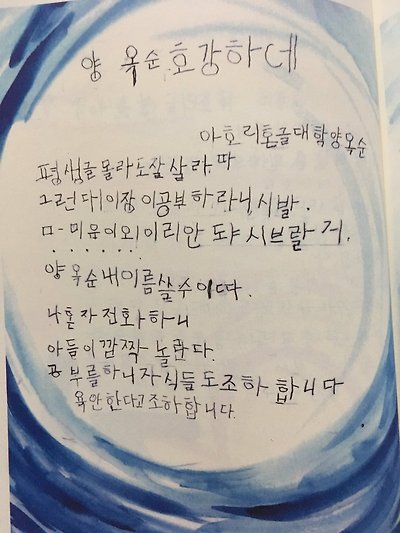 양 옥순호강하네
아흐리흔글대학양옥순
평생글몰라도잘살라따
그런대이잠이공부하라니시발.
ㅁ-미음이외이리안 돠 시브랄거.
양옥순내이름쓸수이따.
나혼자전화하니
아들이깜짝놀란다.
공부를하니자식들도조하합니다
욕안한다고조하합니다.